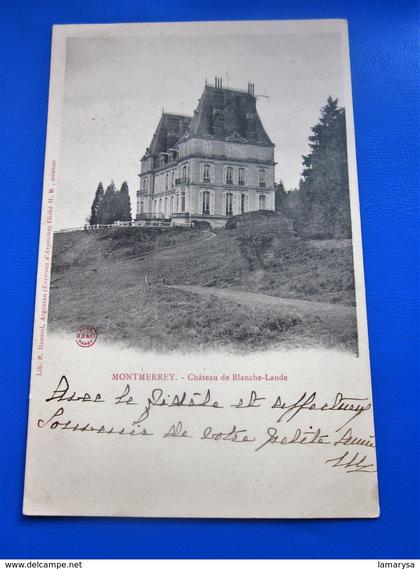 Lib. E. Rousset, Argentan (Environs d'Argentan) Cliché H. M., amateur
MONTMERREY. - Château de Blanche-Lande
Avec le fidèle et affectueux
Souvenir de votre petite amie
www.delcampe.net
lamarysa